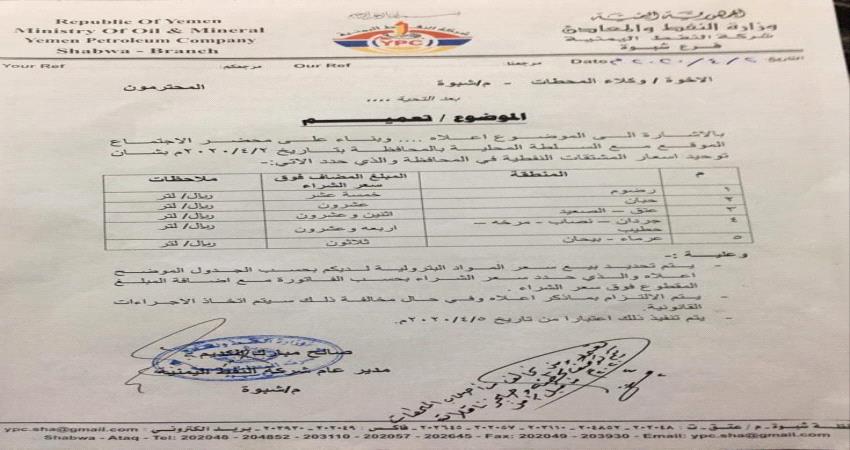 Republic Of Yemen
Ministry Of Oil & Mineral
Yemen Petroleum Company
Shabwa - Branch
الجمهورية اليمنية
وزارة النفط والمعادن
شركة النفط اليمنية
فرع شبوة
YPC
Your Ref مرجعكم: Our Ref مرجعنا: Date ٢٠٢٠/٤/٢م التاريخ:
الاخوة / وكلاء المحطات - م/شبوة المحترمون
بعد التحية ....
الموضوع / تعميم
بالاشارة الى الموضوع اعلاه .... وبناء على محضر الاجتماع
الموقع مع السلطة المحلية بالمحافظة بتاريخ ٢٠٢٠/٤/٢م بشان
توحيد اسعار المشتقات النفطية في المحافظة والذي حدد الاتي:-
م المنطقة المبلغ المضاف فوق سعر الشراء ملاحظات
١ رضوم خمسة عشر ريال/ لتر
٢ حبان عشرون ريال/ لتر
٣ عتق - الصعيد اثنين وعشرون ريال/ لتر
٤ جردان - نصاب - مرخه - حطيب اربعه وعشرون ريال/ لتر
٥ عرماء - بيحان ثلاثون ريال/ لتر
وعلية :-
- يتم تحديد بيع سعر المواد البترولية لديكم بحسب الجدول الموضح
اعلاه والذي حدد سعر الشراء بحسب الفاتورة مع اضافة المبلغ
المقطوع فوق سعر الشراء .
- يتم الالتزام بماذكر اعلاه وفي حال مخالفة ذلك سيتم اتخاذ الاجراءات
القانونية.
- يتم تنفيذ ذلك اعتبارا من تاريخ ٢٠٢٠/٤/٥م.
صالح مبارك
مدير عام شركة النفط اليمنية
م/شبوة
شبوة - م / عتق - ت : ٢٠٢٠٤٨ - ٢٠٤٨٥٢ - ٢٠٣١١٠ - ٢٠٢٠٥٧ - ٢٠٢٦٤٥ - فاكس : ٢٠٢٠٤٩ - ٢٠٣٩٣٠ - بريد الكتروني : ypc.sha@gmail.com
Shabwa - Ataq - Tel: 202048 - 204852 - 203110 - 202057 - 202645 - Fax: 202049 - 203930 - Email: ypc.sha@gmail.com